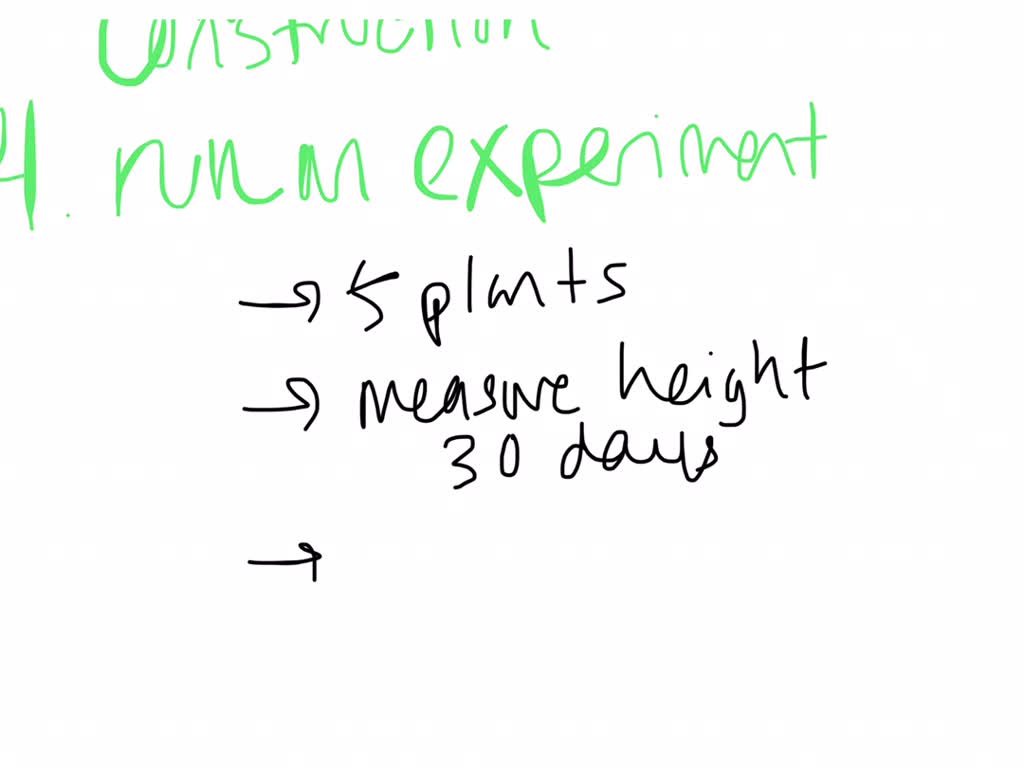 Construction
4. run an experiment
→ 5 plants
→ measure height
30 days
→